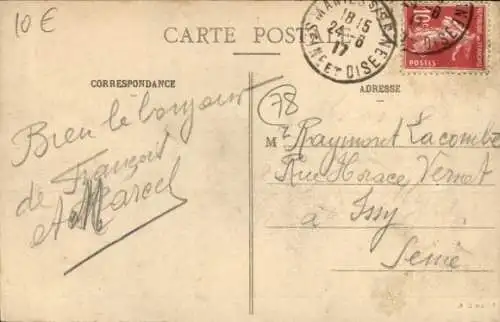 10 €
CARTE POSTALE
MANTES S/ SNE
18 15
24 - 8
17
SEINE ET OISE
10c
POSTES
CORRESPONDANCE
ADRESSE
78
Bien le bonjour
de François
et Marcel
Mr Raymont Lacombe
Rue Horace Vernet
à Issy
Seine